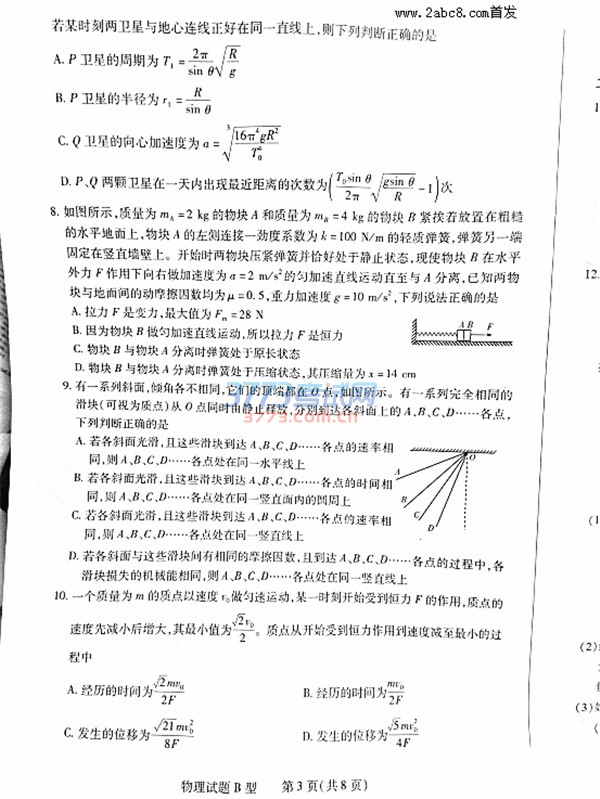 www.2abc8.com首发
若某时刻两卫星与地心连线正好在同一直线上,则下列判断正确的是
A. P 卫星的周期为 T₁ = 2π/sin θ √(R/g)
B. P 卫星的半径为 r₁ = R/sin θ
C. Q 卫星的向心加速度为 a = ∛(16π⁴gR²/T₀⁴)
D. P、Q 两颗卫星在一天内出现最近距离的次数为(T₀sin θ/2π √(gsin θ/R) − 1)次
8. 如图所示,质量为 mA = 2 kg 的物块 A 和质量为 mB = 4 kg 的物块 B 紧挨着放置在粗糙
的水平地面上,物块 A 的左侧连接一劲度系数为 k = 100 N/m 的轻质弹簧,弹簧另一端
固定在竖直墙壁上。开始时两物块压紧弹簧并恰好处于静止状态,现使物块 B 在水平
外力 F 作用下向右做加速度为 a = 2 m/s² 的匀加速直线运动直至与 A 分离,已知两物
块与地面间的动摩擦因数均为 μ = 0.5,重力加速度 g = 10 m/s²,下列说法正确的是
A. 拉力 F 是变力,最大值为 Fm = 28 N
B. 因为物块 B 做匀加速直线运动,所以拉力 F 是恒力
C. 物块 B 与物块 A 分离时弹簧处于原长状态
D. 物块 B 与物块 A 分离时弹簧处于压缩状态,其压缩量为 x = 14 cm
A B F
9. 有一系列斜面,倾角各不相同,它们的顶端都在 O 点,如图所示。有一系列完全相同的
滑块(可视为质点)从 O 点同时由静止释放,分别到达各斜面上的 A、B、C、D……各点,
下列判断正确的是
3773考试网
3773.com.cn
A. 若各斜面光滑,且这些滑块到达 A、B、C、D……各点的速率相
同,则 A、B、C、D……各点处在同一水平线上
B. 若各斜面光滑,且这些滑块到达 A、B、C、D……各点的时间相
同,则 A、B、C、D……各点处在同一竖直面内的圆周上
C. 若各斜面光滑,且这些滑块到达 A、B、C、D……各点的速率相
同,则 A、B、C、D……各点处在同一竖直线上
D. 若各斜面与这些滑块间有相同的摩擦因数,且到达 A、B、C、D……各点的过程中,各
滑块损失的机械能相同,则 A、B、C、D……各点处在同一竖直线上
O
A
B
C
D
10. 一个质量为 m 的质点以速度 v₀ 做匀速运动,某一时刻开始受到恒力 F 的作用,质点的
速度先减小后增大,其最小值为 √2v₀/2。质点从开始受到恒力作用到速度减至最小的过
程中
A. 经历的时间为 √2mv₀/2F
B. 经历的时间为 mv₀/2F
C. 发生的位移为 √21mv₀²/8F
D. 发生的位移为 √5mv₀²/4F
物理试题 B 型 第 3 页(共 8 页)
12.
(1
(2)
(3)